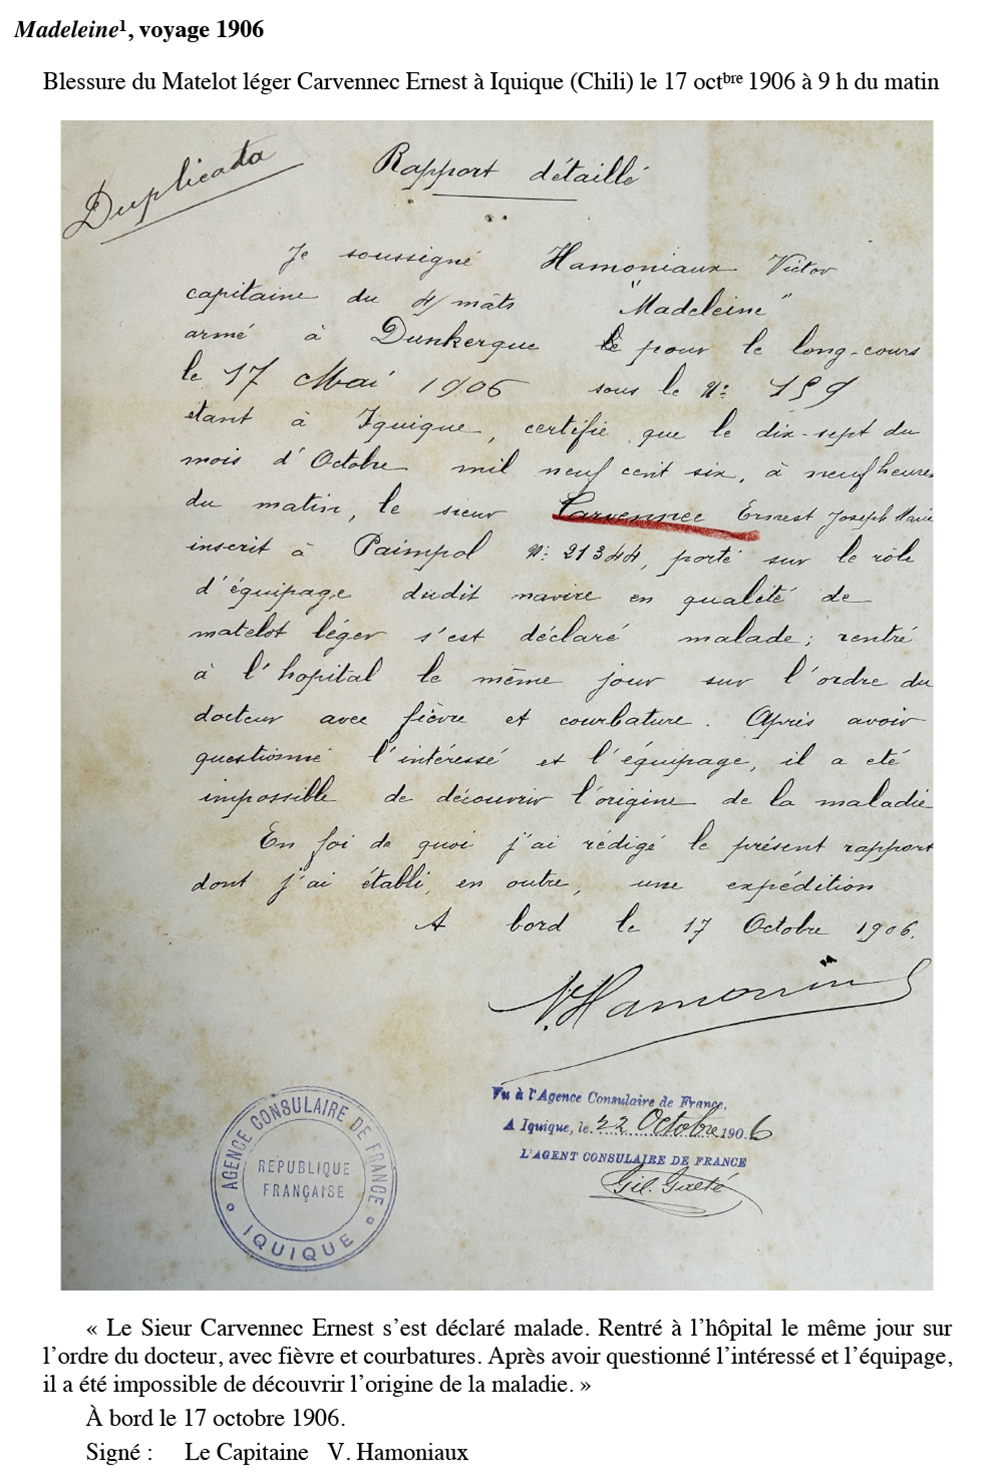 Madeleine¹, voyage 1906
Blessure du Matelot léger Carvennec Ernest à Iquique (Chili) le 17 octbre 1906 à 9 h du matin
Duplicata
Rapport détaillé
Je soussigné Hamoniaux Victor
capitaine du 4/mâts "Madeleine"
armé à Dunkerque pour le long-cours
le 17 Mai 1906 sous le N°: 159
étant à Iquique, certifie que le dix-sept du
mois d'Octobre mil neuf cent six, à neuf heures
du matin, le sieur Carvennec Ernest Joseph Marie
inscrit à Paimpol N°: 21344, porté sur le rôle
d'équipage dudit navire en qualité de
matelot léger s'est déclaré malade; rentré
à l'hopital le même jour sur l'ordre du
docteur avec fièvre et courbature. Après avoir
questionné l'intéressé et l'équipage, il a été
impossible de découvrir l'origine de la maladie
En foi de quoi j'ai rédigé le présent rapport
dont j'ai établi, en outre, une expédition
A bord le 17 Octobre 1906.
Vu à l'Agence Consulaire de France,
A Iquique, le 22 Octobre 1906
L'AGENT CONSULAIRE DE FRANCE
AGENCE CONSULAIRE DE FRANCE
RÉPUBLIQUE
FRANÇAISE
IQUIQUE
« Le Sieur Carvennec Ernest s'est déclaré malade. Rentré à l'hôpital le même jour sur
l'ordre du docteur, avec fièvre et courbatures. Après avoir questionné l'intéressé et l'équipage,
il a été impossible de découvrir l'origine de la maladie. »
À bord le 17 octobre 1906.
Signé : Le Capitaine V. Hamoniaux